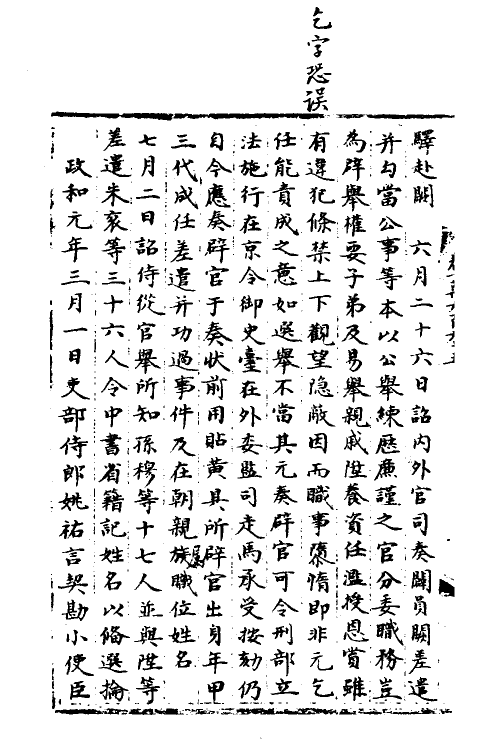 乞字恐誤
驛赴闕　六月二十六日詔內外官司奏闢員闕差遣
并勾當公事等本以公舉練歷廉謹之官分委職務豈
為辟舉權要子弟及易舉親戚陞養資任濫授恩賞雖
有違犯條禁上下觀望隐蔽因而職事隳惰即非元乞
任能責成之意如選舉不當其元奏辟官可令刑部立
法施行在京令御史臺在外委監司走馬承受按劾仍
自今應奏辟官于奏狀前用貼黃具所辟官出身年甲
三代成任差遣并功過事件及在朝親族屬職位姓名
七月二日詔侍從官舉所知孫穆等十七人並與陞等
差遣朱袞等三十六人令中書省籍記姓名以俻選掄
政和元年三月一日吏部侍郎姚祐言契勘小使臣